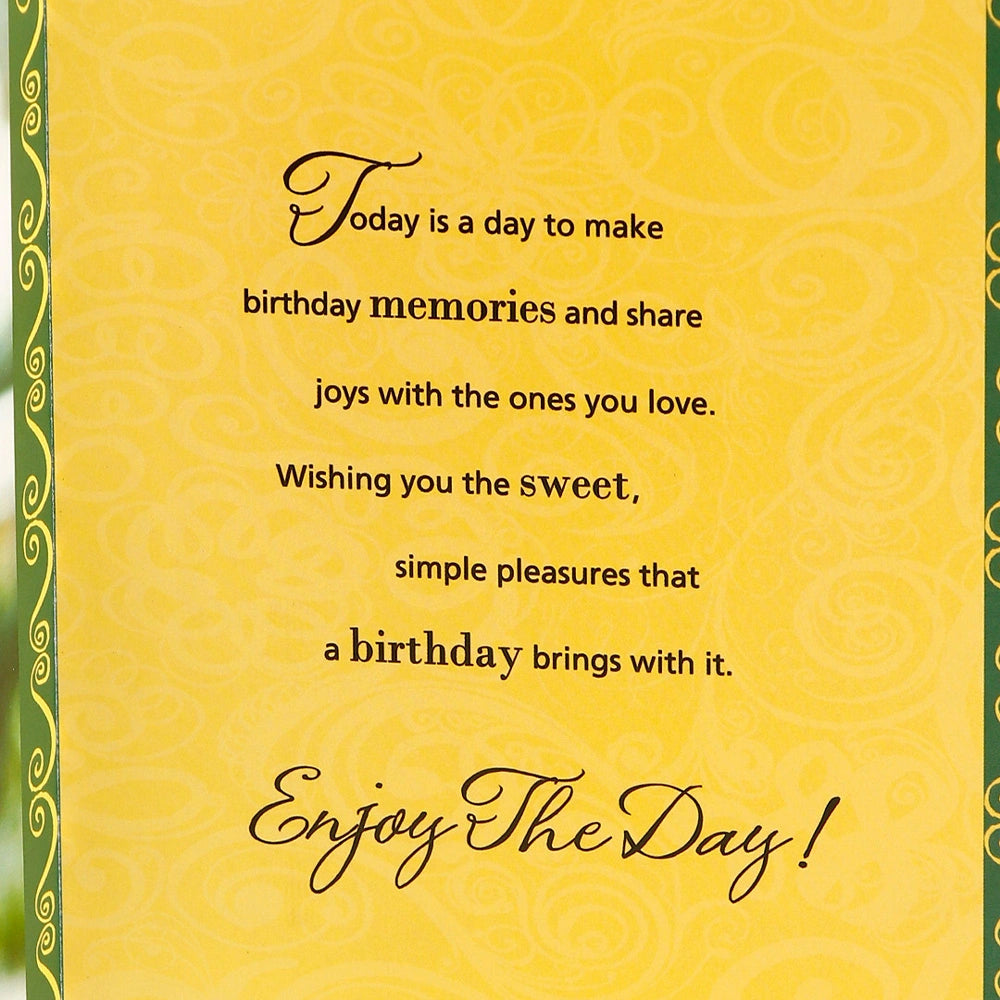 Today is a day to make
birthday memories and share
joys with the ones you love.
Wishing you the sweet,
simple pleasures that
a birthday brings with it.
Enjoy The Day!